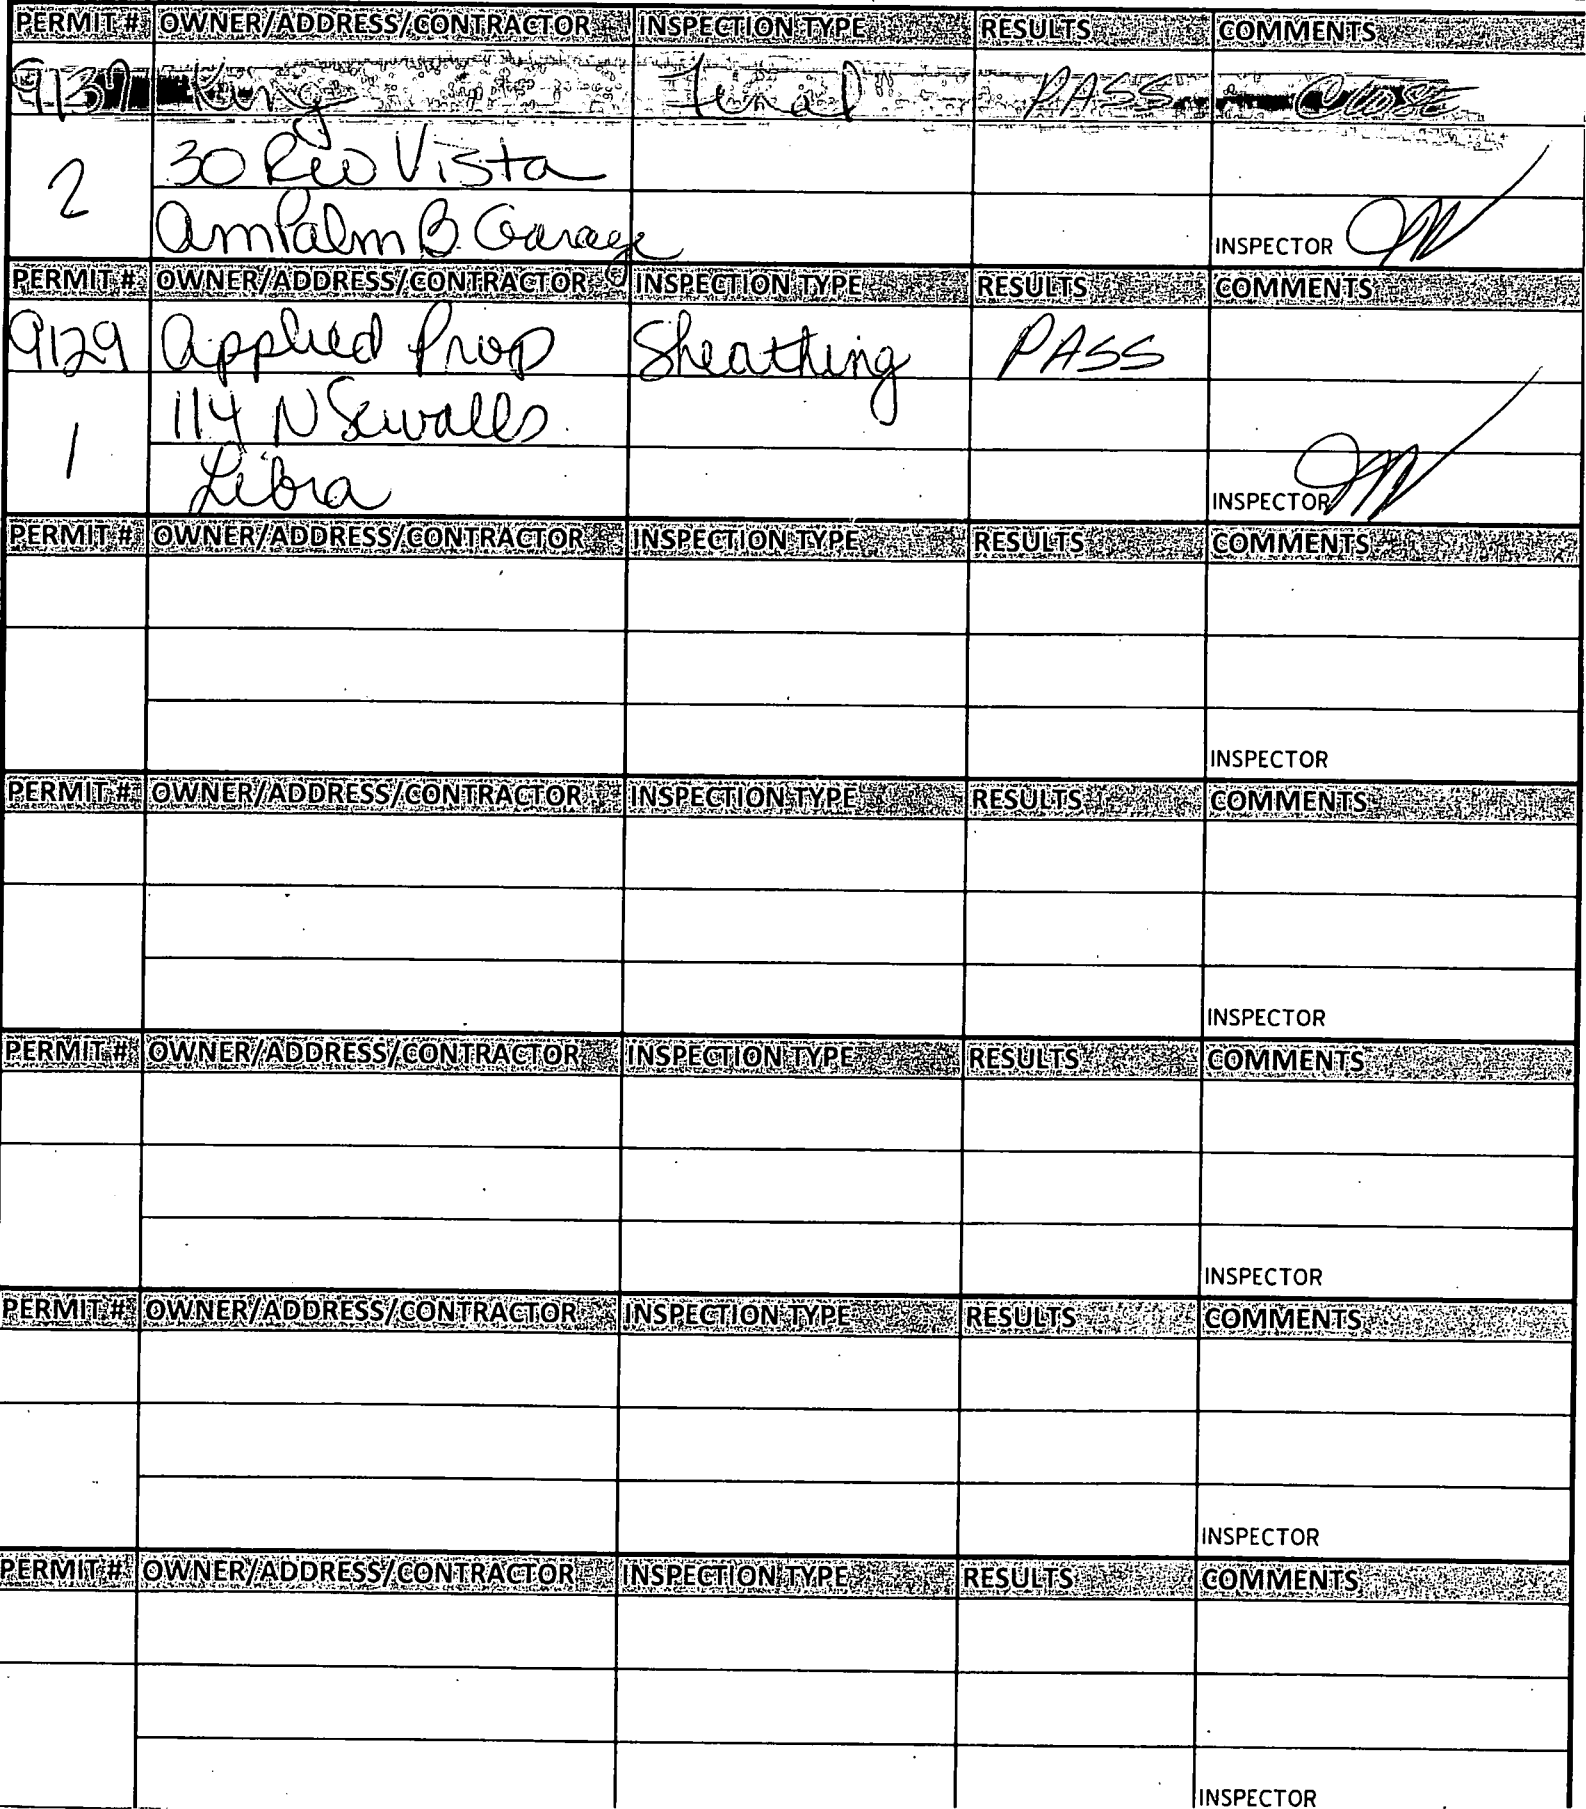 PERMIT # OWNER/ADDRESS/CONTRACTOR INSPECTION TYPE RESULTS COMMENTS
9137 King Final PASS Close
2 30 Rio Vista
Am Palm B. Garage INSPECTOR
PERMIT # OWNER/ADDRESS/CONTRACTOR INSPECTION TYPE RESULTS COMMENTS
9129 Applied Prop Sheathing PASS
1 114 N Sewalls
Libra INSPECTOR
PERMIT # OWNER/ADDRESS/CONTRACTOR INSPECTION TYPE RESULTS COMMENTS
INSPECTOR
PERMIT # OWNER/ADDRESS/CONTRACTOR INSPECTION TYPE RESULTS COMMENTS
INSPECTOR
PERMIT # OWNER/ADDRESS/CONTRACTOR INSPECTION TYPE RESULTS COMMENTS
INSPECTOR
PERMIT # OWNER/ADDRESS/CONTRACTOR INSPECTION TYPE RESULTS COMMENTS
INSPECTOR
PERMIT # OWNER/ADDRESS/CONTRACTOR INSPECTION TYPE RESULTS COMMENTS
INSPECTOR